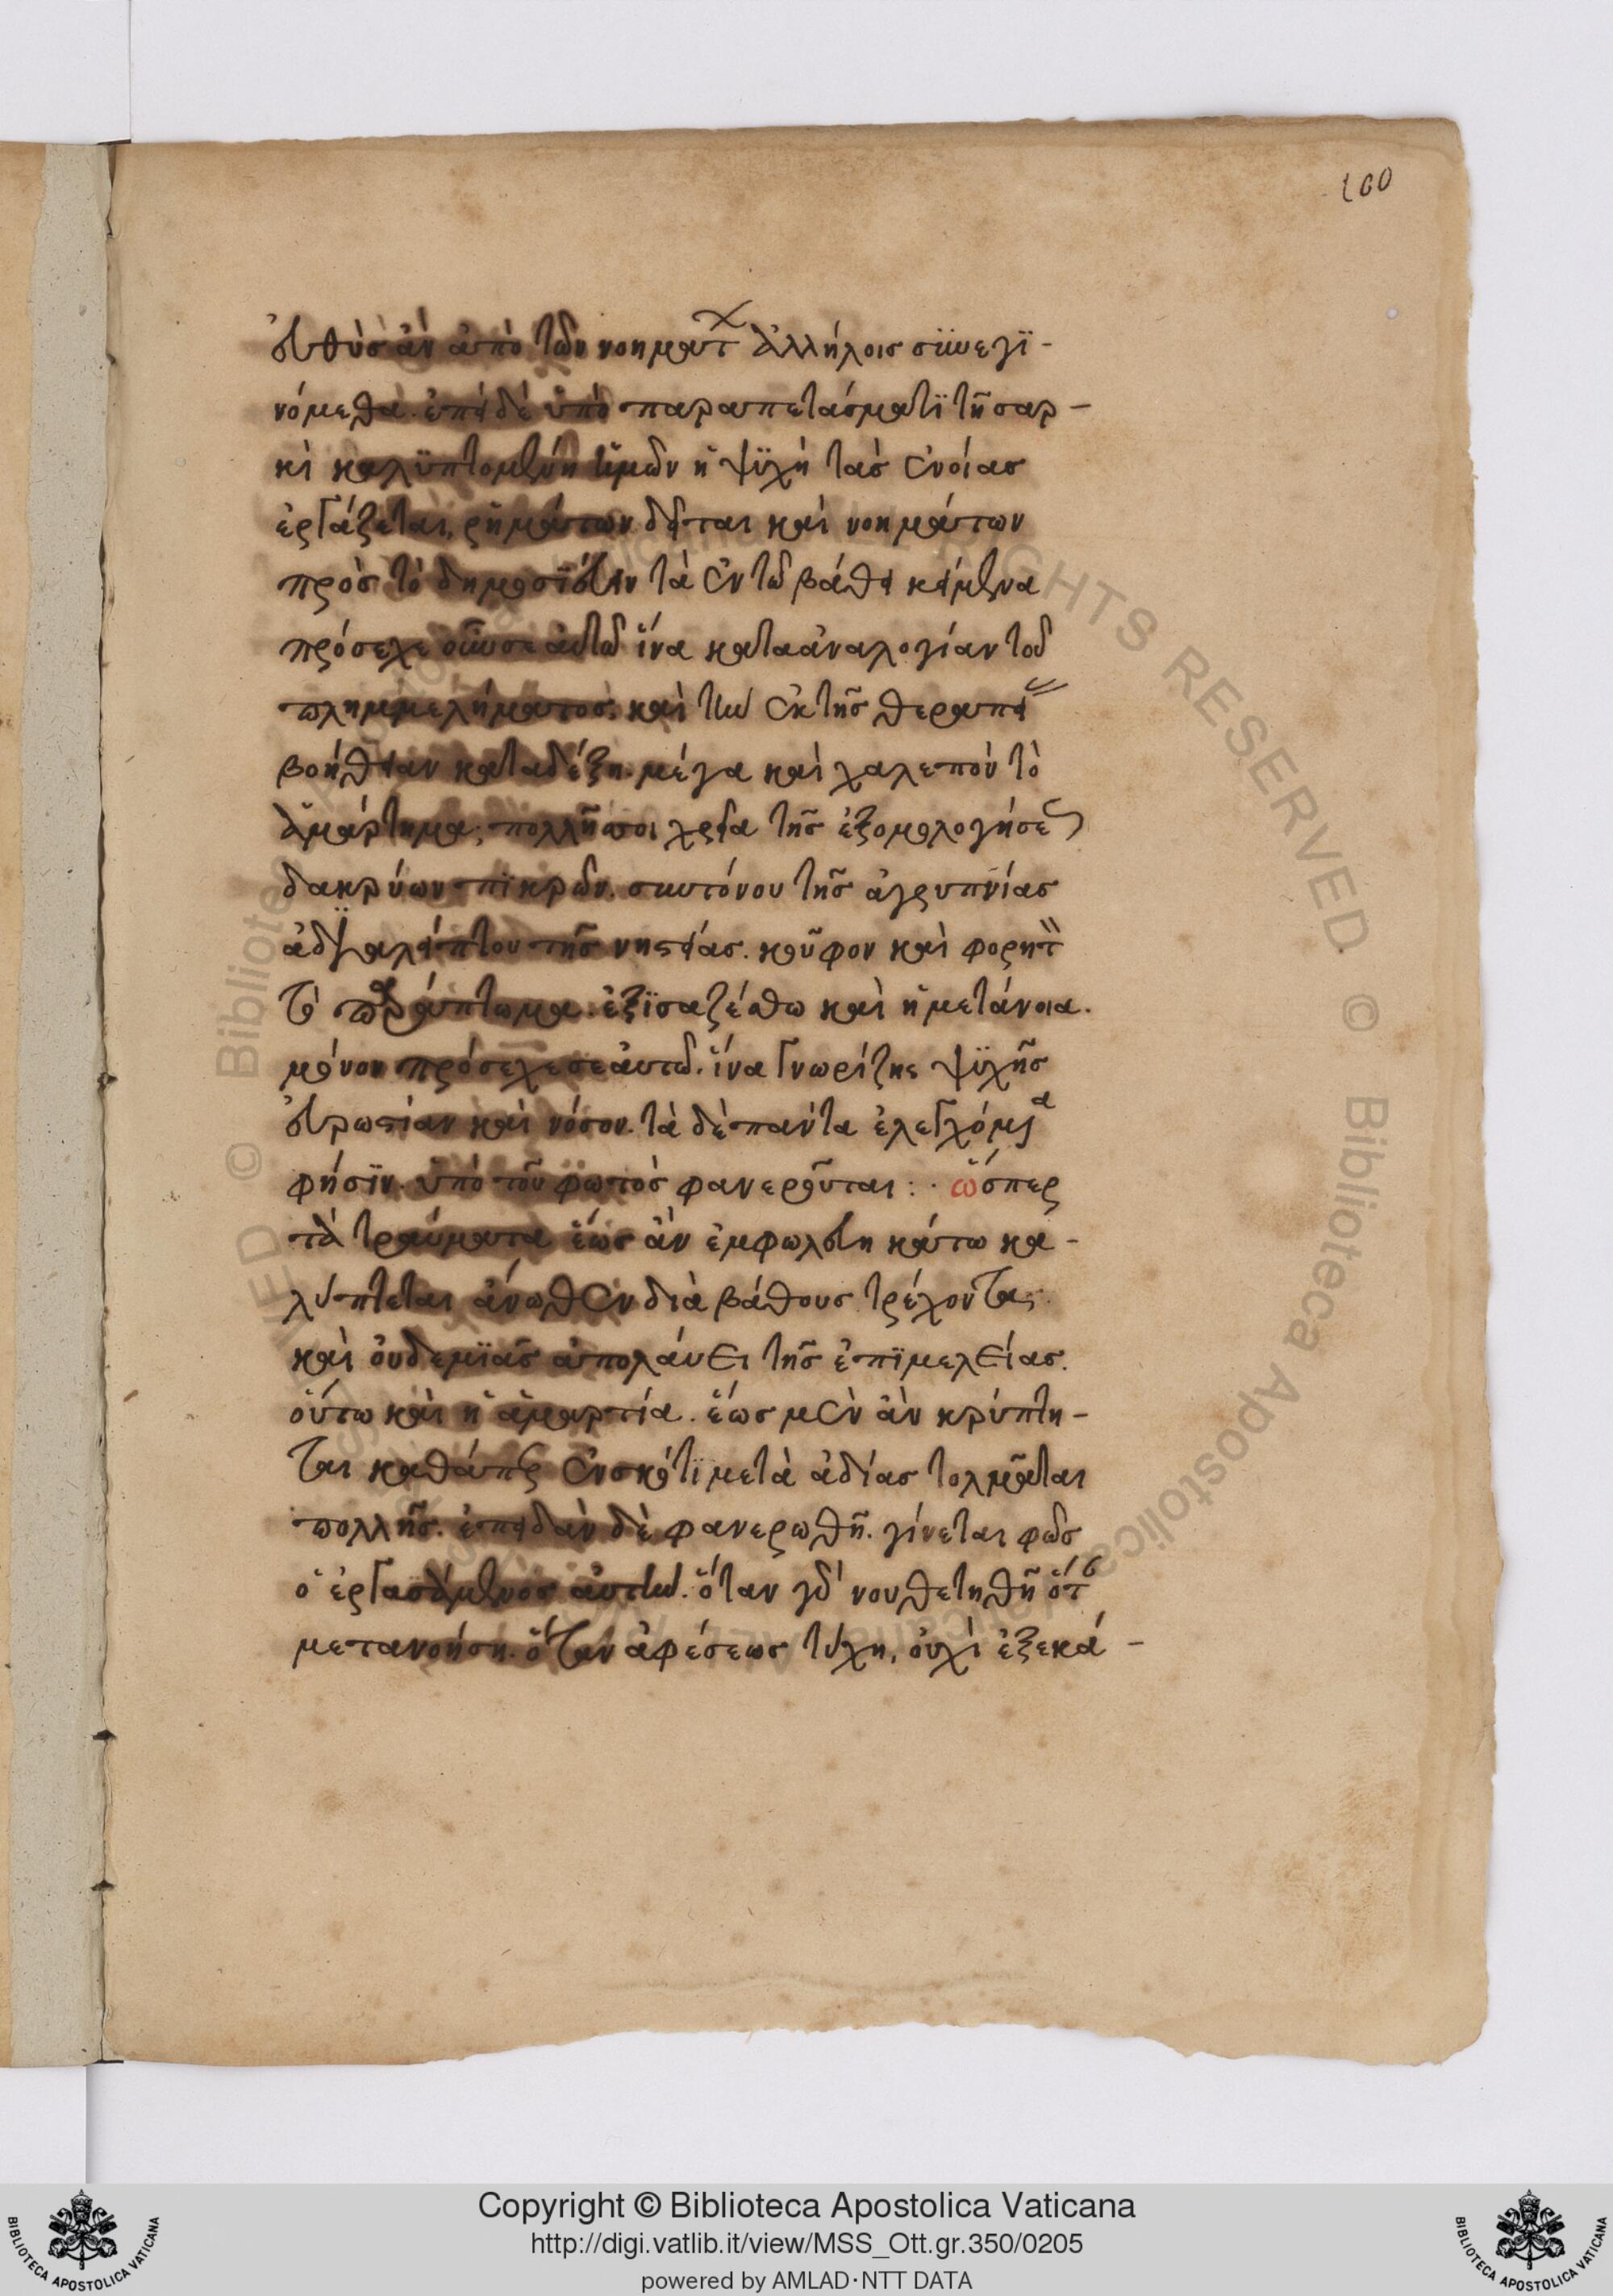 100
εὐθὺς ἂν ἀπὸ τῶν νοημάτ ἀλλήλοις συνεγι-
νόμεθα. ἐπεὶ δὲ ὑπὸ παραπετάσματϊ τῆ σαρ-
κὶ καλϋπτομένη ἡμῶν ἡ ψϋχὴ τὰς ἐννοίας
ἐργάζεται, ῥημάτων δεῖται καὶ νοημάτων
πρὸς τὸ δημοσϊεύειν τὰ ἐν τῶ βάθει κείμενα
πρόσεχε οὖν σεαυτῶ ἵνα κατα ἀναλογίαν τοῦ
πλημμελήματος. καὶ τὴν ἐκ τῆς θεραπεί
βοήθειαν καταδέξη. μέγα καὶ χαλεπὸν τὸ
ἁμάρτημα; πολλῆς σοι χρεία τῆς ἐξομολογήσε
δακρύων πϊκρῶν. συντόνου τῆς ἀγρυπνίας
ἀδϊαλείπτου τῆς νηστείας. κοῦφον καὶ φορητ
τὸ παράπτωμα. ἐξϊσαζέσθω καὶ ἡ μετάνοια.
μόνον πρόσεχε σεαυτῶ. ἵνα γνωρίζης ψϋχῆς
εὐρωστίαν καὶ νόσον. τὰ δὲ πάντα ἐλεγχόμενα
φησϊν. ὑπὸ τοῦ φωτὸς φανεροῦται : · ὥσπερ
τὰ τραύματα ἕως ἂν ἐμφωλεύη κάτω κα-
λύπτεται ἄνωθεν διὰ βάθους τρέχοντα;
καὶ οὐδεμϊᾶς ἀπολάυει τῆς ἐπϊμελείας.
οὕτω καὶ ἡ ἁμαρτία. ἕως μὲν ἂν κρύπτη-
ται καθάπερ ἐν σκότϊ μετὰ ἀδείας τολμᾶται
πολλῆς. ἐπειδὰν δὲ φανερωθῆ. γίνεται φῶς
ὁ ἐργασάμενος αὐτὴν. ὅταν γὰρ νουθετηθῆ ὅτ
μετανοήση. ὅταν ἀφέσεως τύχη, οὐχὶ ἐξεκά-
Copyright © Biblioteca Apostolica Vaticana
http://digi.vatlib.it/view/MSS_Ott.gr.350/0205
powered by AMLAD·NTT DATA